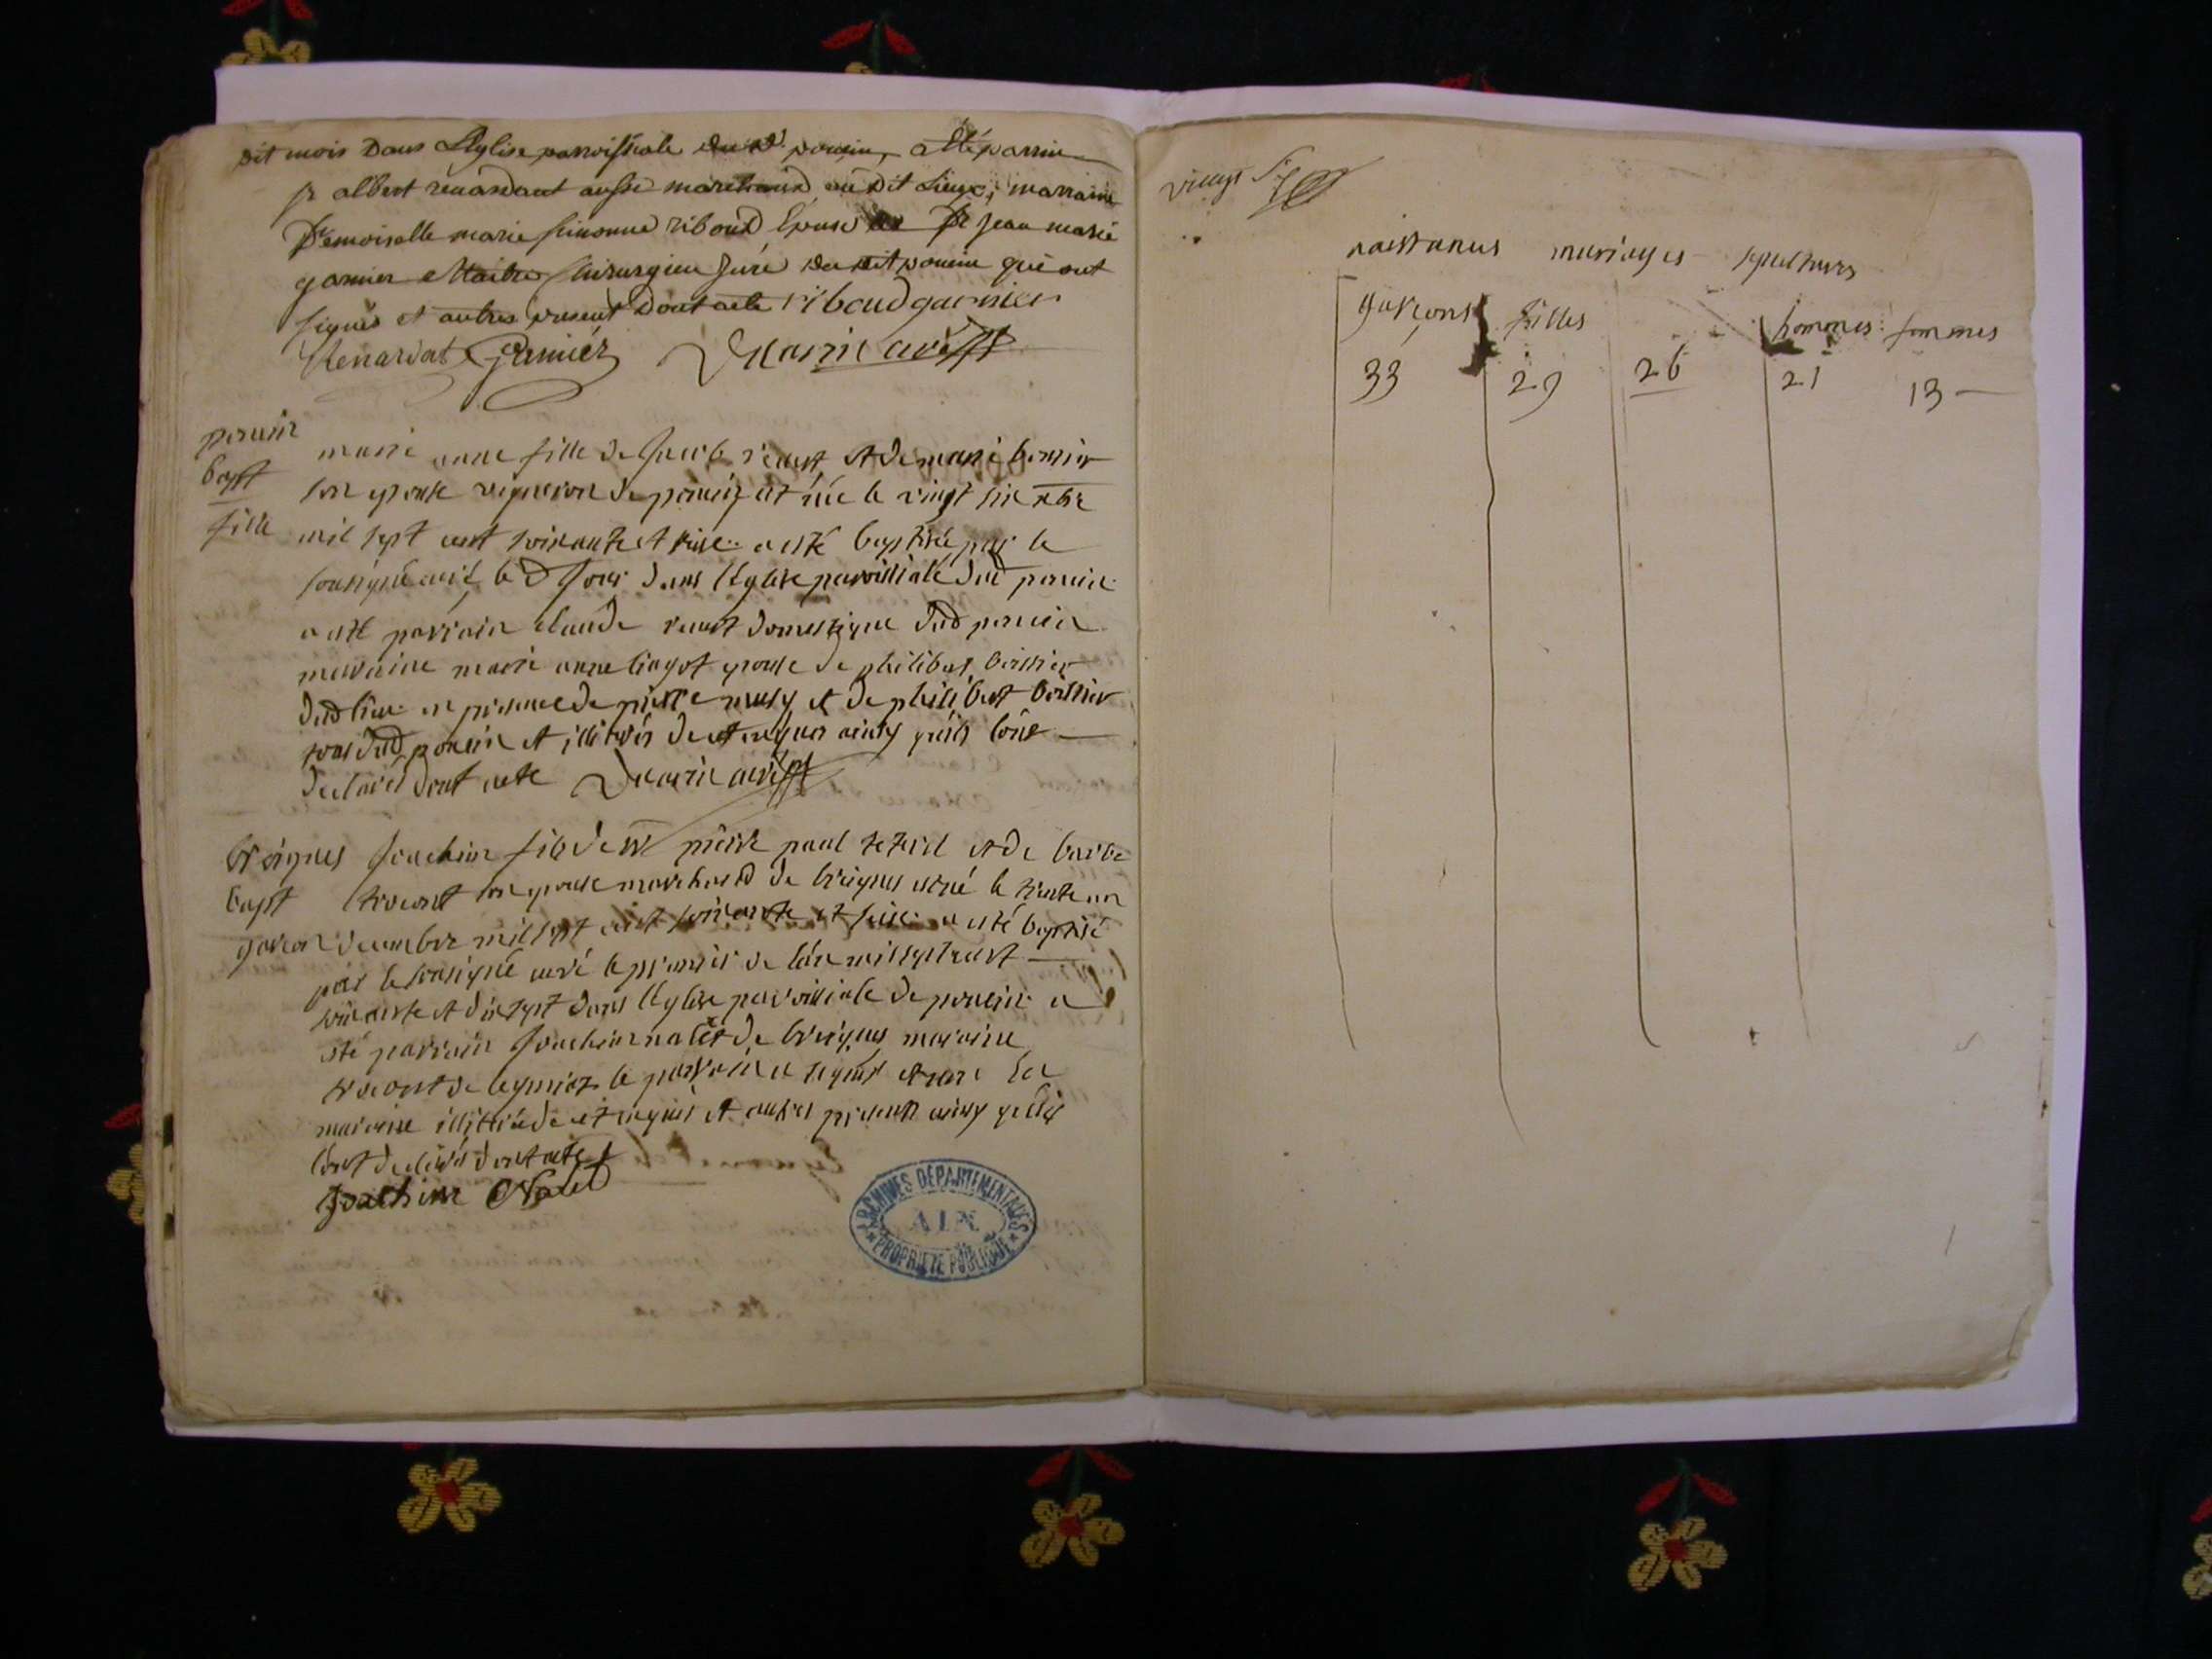 dit mois dans L'Eglise parroissiale dud. poncin, a Eté parrin
sr albert renardaut aussi marchand au dit Lieux, marraine
Demoiselle marie simonne riboud Epouse de Sr jean marie
garnier Maitre Chirurgien juré du dit poncin qui ont
signés et autres present Dont acte riboud garnier
Renardat Garnier curé
poncin
bapt
fille
marie anne fille de Jacob revst et de marie boissier
son epouse vigneron de poncin est née le vingt six xbre
mil sept cent soixante et seize a esté baptisée par le
soussigné curé led jour dans l'eglise parroissiale dud poncin
a esté parrain claude revst domestique dud poncin
maraine marie anne lingot epouse de philibert boissier
dud lieu en presence de pierre musy et de philibert boissier
tous dud poncin et illitérés de et requis ainsy qu'ils l'ont
declarés dont acte curé
breignes
bapt
garcon
Joachim fils de pierre paul et de barbe
son epouse marchand de breignes est né le trente un
decembre mil sept cent soixante et seize a esté baptisé
par le soussigné curé le premier de l'an mil sept cent
soixante et dix sept dans l'eglise parroissiale de poncin a
esté parrain Joachim de breignes maraine
de leymiat le parrain a signé et non la
maraine illitérée de et requis et autres presents ainsy qu'ils
l'ont declarés dont acte
Joachim
ARCHIVES DÉPARTEMENTALES
AIN
PROPRIÉTÉ PUBLIQUE
naissances mariages sepultures
garçons filles hommes femmes
33 29 26 21 13